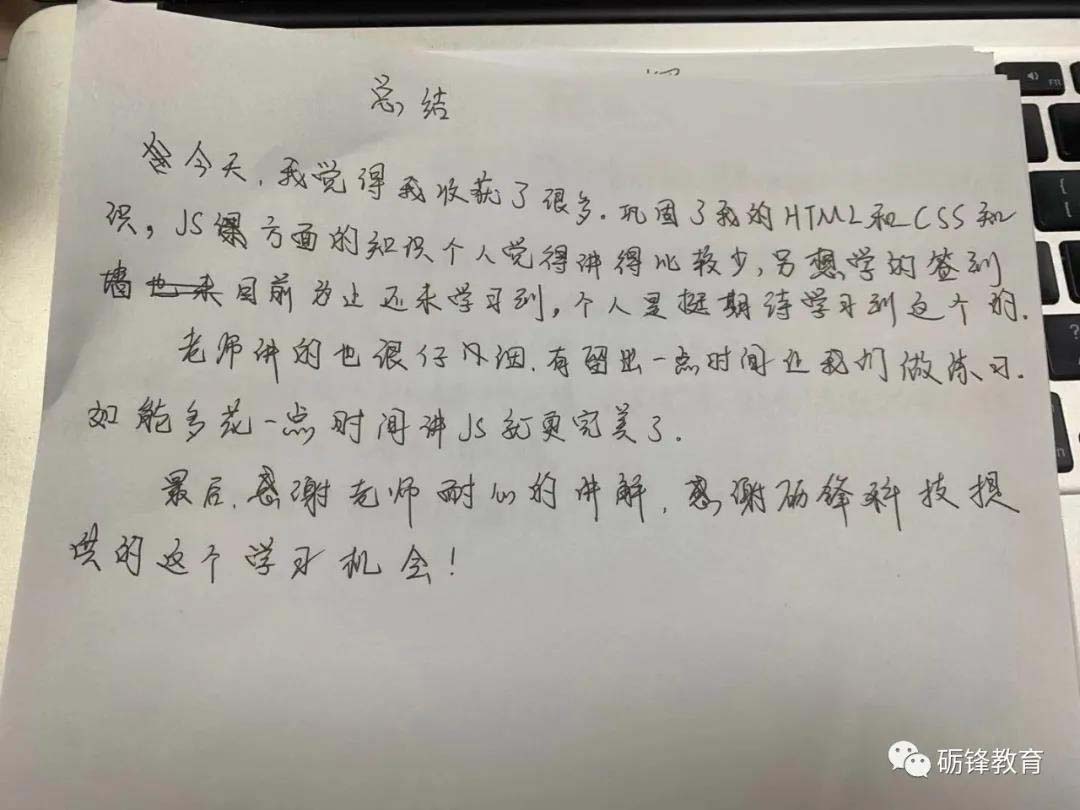 总结
今天,我觉得我收获了很多.巩固了我的HTML和CSS知
识,JS课方面的知识个人觉得讲得比较少,另想学的签到
墙也未目前为止还未学习到,个人是挺期待学习到这个的.
老师讲的也很仔细,有留出一点时间让我们做练习.
如能多花一点时间讲JS就更完美了.
最后,感谢老师耐心的讲解,感谢砺锋科技提
供的这个学习机会!
F11
砺锋教育